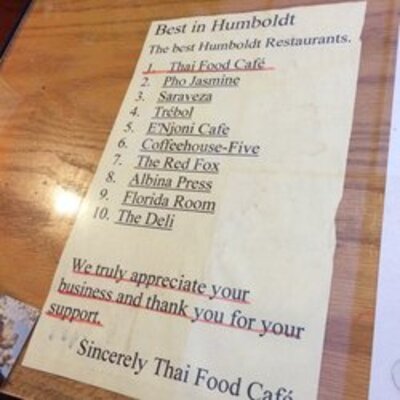 Best in Humboldt
The best Humboldt Restaurants.
1. Thai Food Café
2. Pho Jasmine
3. Saraveza
4. Trébol
5. E'Njoni Cafe
6. Coffeehouse-Five
7. The Red Fox
8. Albina Press
9. Florida Room
10. The Deli
We truly appreciate your
business and thank you for your
support.
Sincerely Thai Food Café